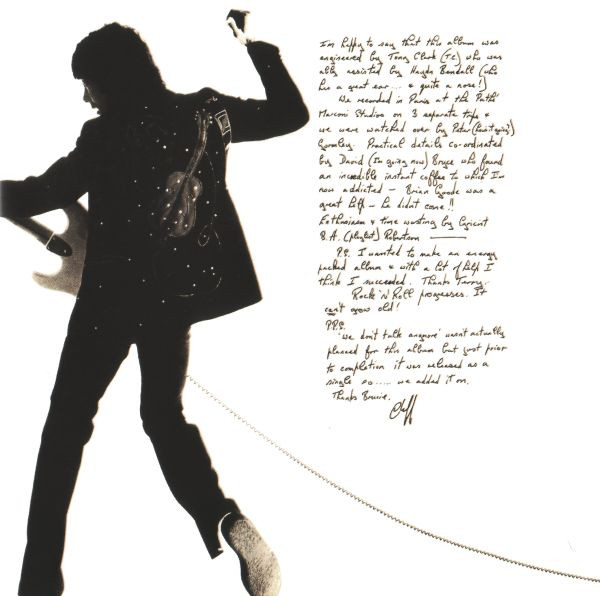 I'm happy to say that this album was
engineered by Tony Clark (T.C.) who was
ably assisted by Haydn Bendall (who
has a great ear... & quite a nose!)
We recorded in Paris at the Pathé
Marconi Studios on 3 separate trips &
we were watched over by Peter (how's it going?)
Gormley. Practical details co-ordinated
by David (I'm going now) Bryce who found
an incredible instant coffee to which I'm
now addicted — Brian Goode was a
great help — he didn't come!!
Enthusiasm & time wasting by
B.A. (playlist) Robertson
P.S. I wanted to make an energy
packed album & with a lot of help I
think I succeeded. Thanks Terry.
Rock 'N' Roll progresses. It
can't grow old!
P.P.S.
'We don't talk anymore' wasn't actually
planned for this album but just prior
to completion it was released as a
single so..... we added it on.
Thanks Brucie.
Cliff